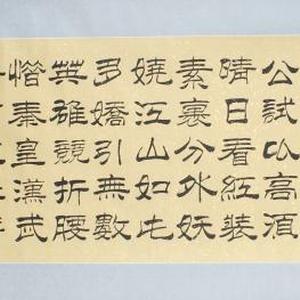 公試比高須
晴日看紅裝
素裹分外妖
嬈江山如此
多嬌引無數
英雄競折腰
惜秦皇漢武